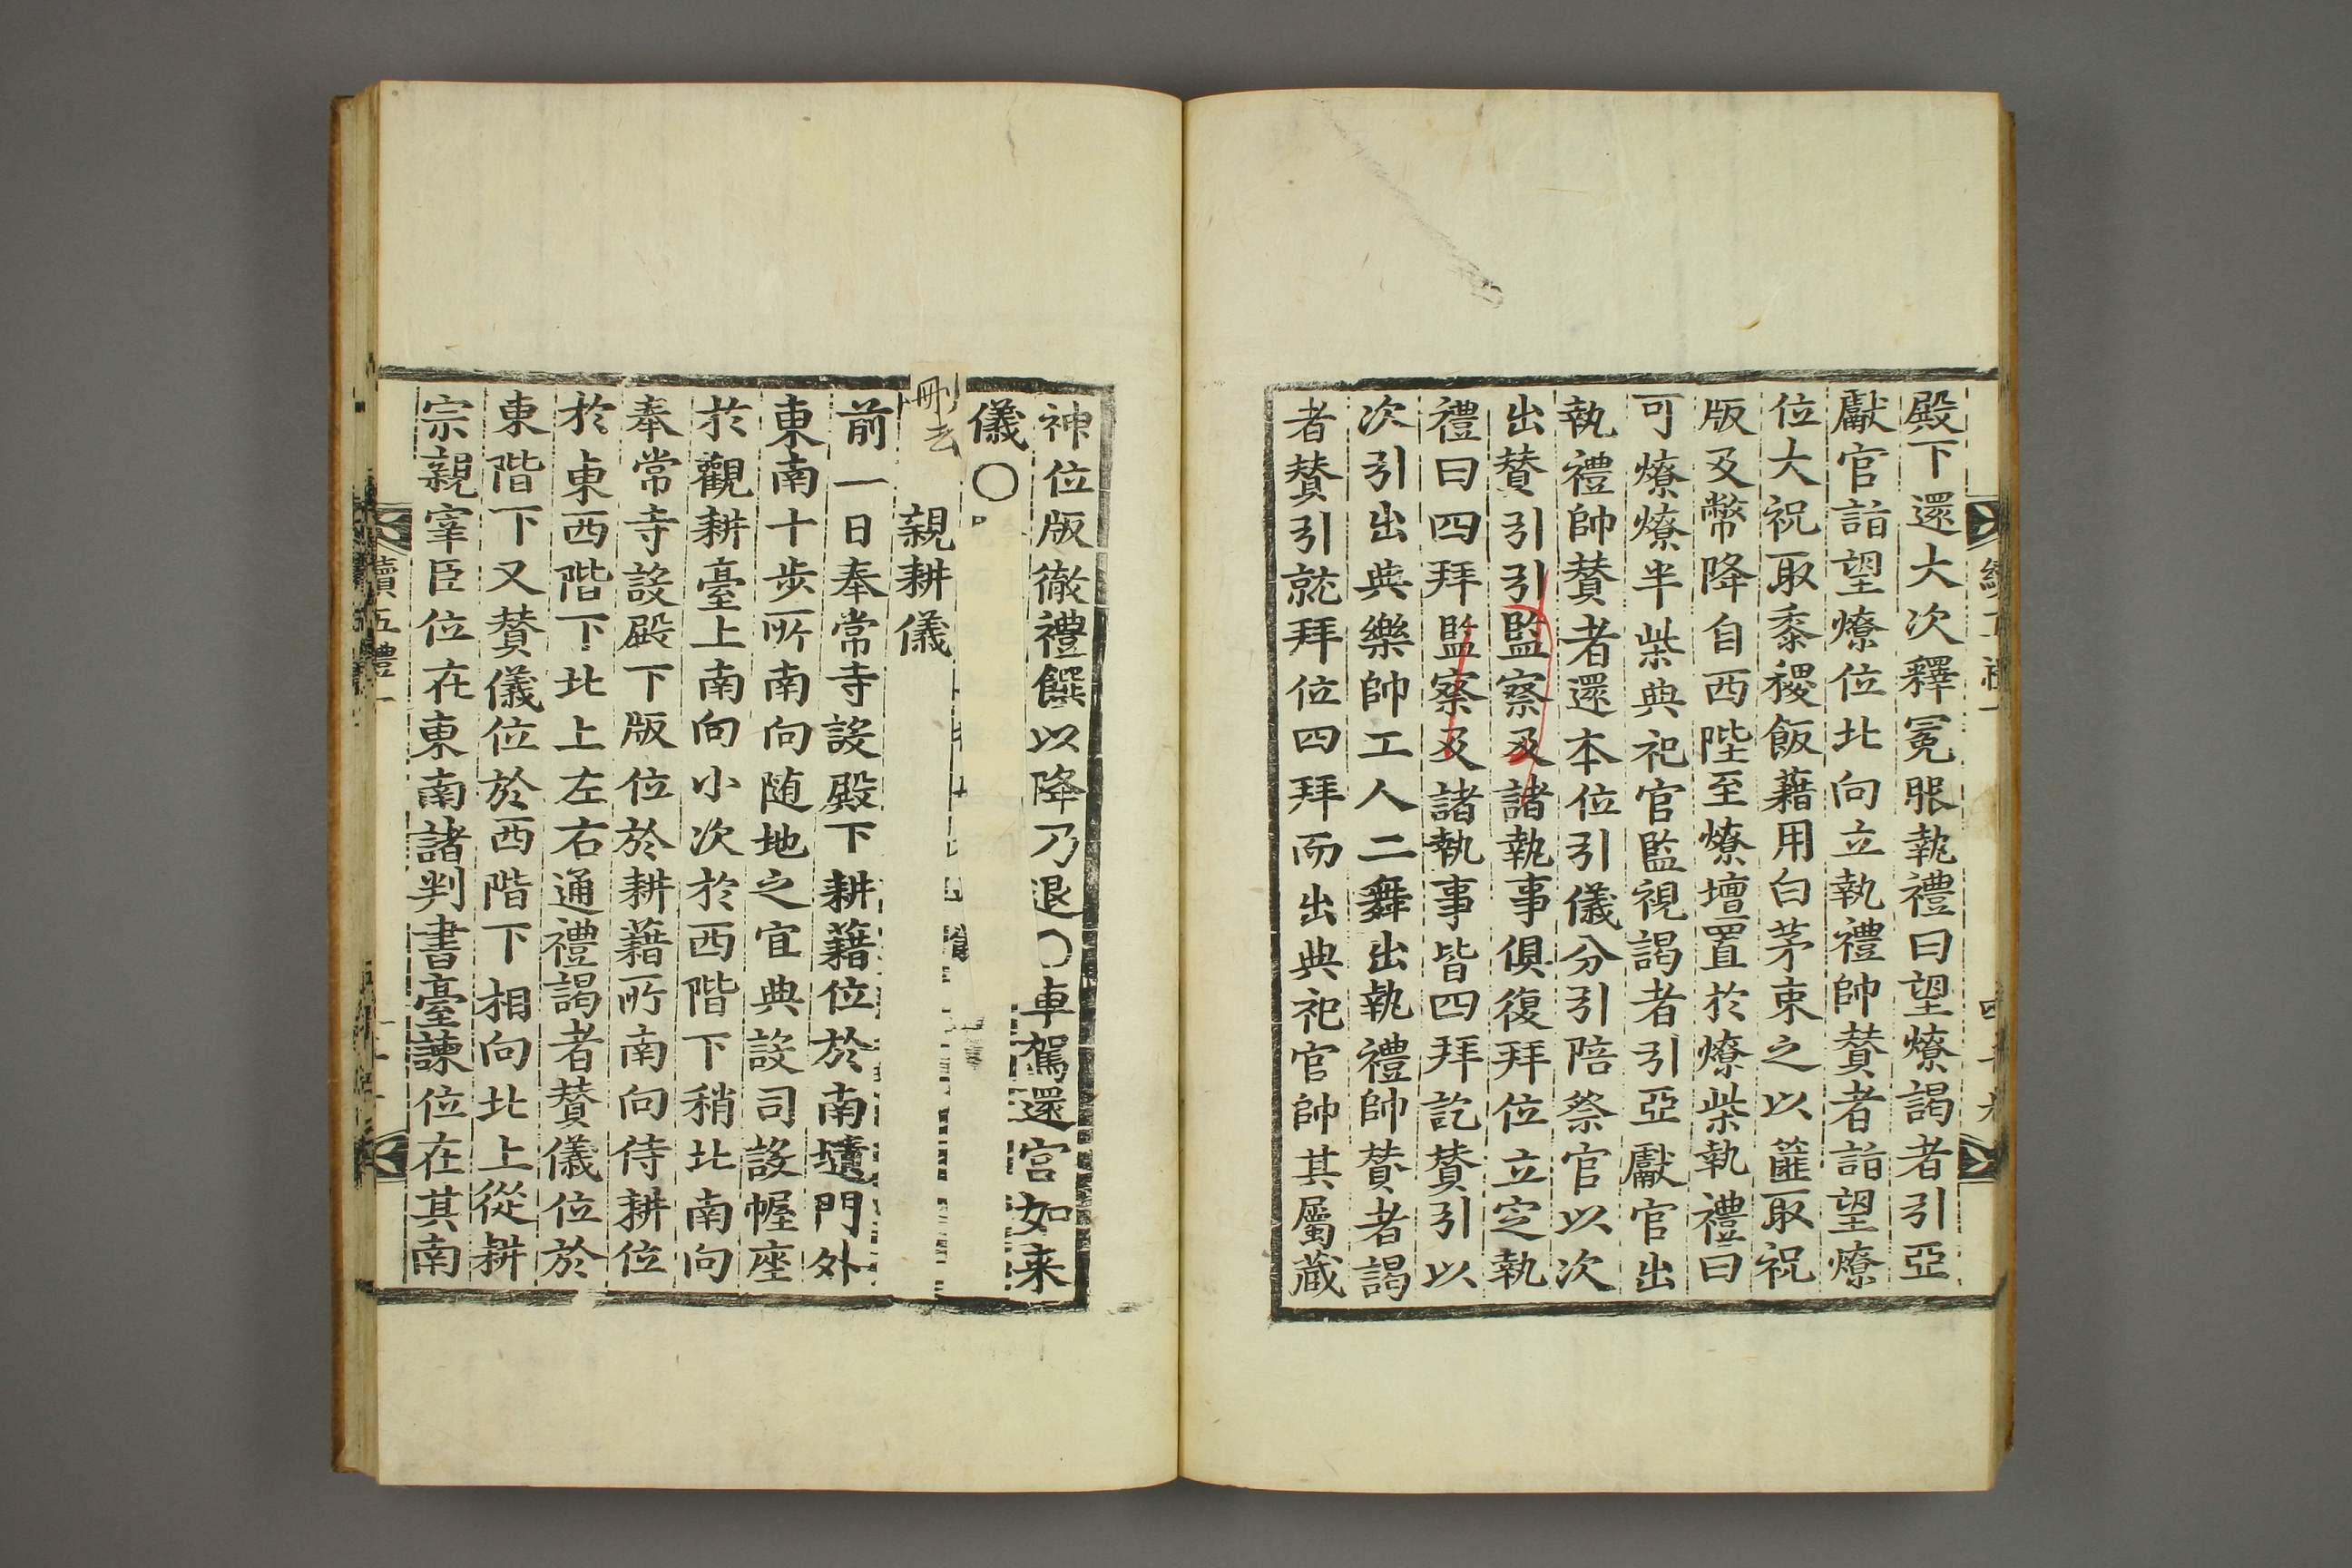 殿下還大次釋冕服執禮曰望燎謁者引亞
獻官詣望燎位北向立執禮帥贊者詣望燎
位大祝取黍稷飯藉用白茅束之以篚取祝
版及幣降自西陛至燎壇置於燎柴執禮曰
可燎燎半柴典祀官監視謁者引亞獻官出
執禮帥贊者還本位引儀分引陪祭官以次
出贊引引監察及諸執事俱復拜位立定執
禮曰四拜監察及諸執事皆四拜訖贊引以
次引出典樂帥工人二舞出執禮帥贊者謁
者贊引就拜位四拜而出典祀官帥其屬藏
神位版徹禮饌以降乃退○車駕還宮如來
儀○
刪去
親耕儀
前一日奉常寺設殿下耕藉位於南壝門外
東南十步所南向随地之宜典設司設幄座
於觀耕臺上南向小次於西階下稍北南向
奉常寺設殿下版位於耕藉所南向侍耕位
於東西階下北上左右通禮謁者贊儀位於
東階下又贊儀位於西階下相向北上從耕
宗親宰臣位在東南諸判書臺諫位在其南
續五禮一